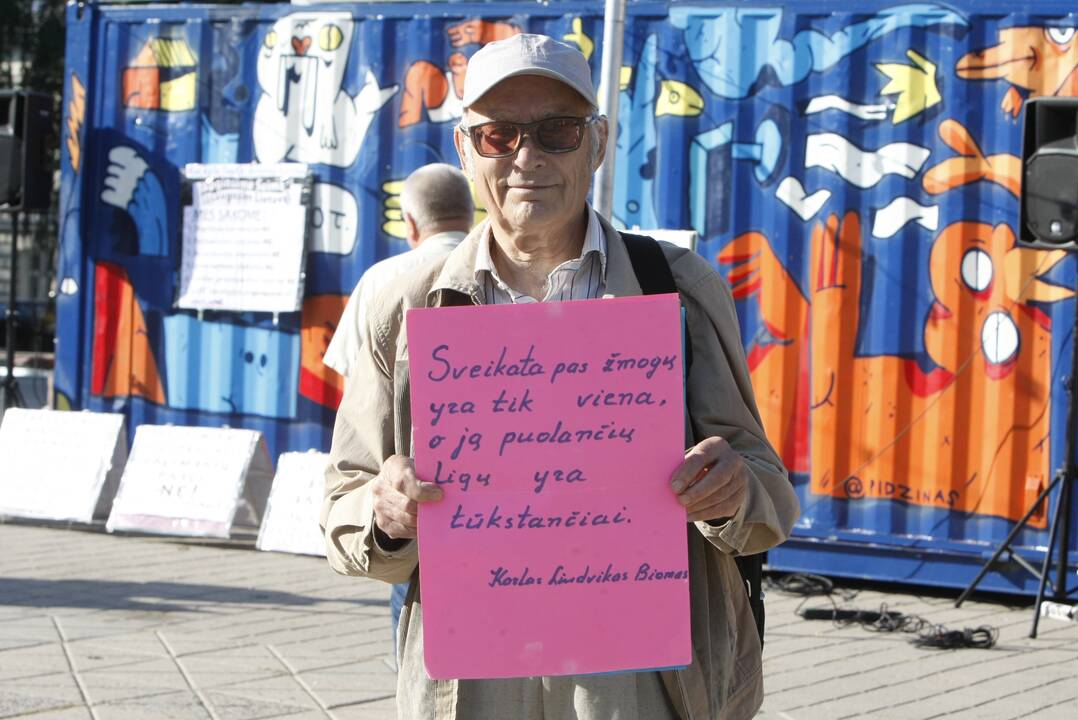 MES SAKOME:
NE!
Sveikata pas žmogų
yra tik viena,
o ją puolančių
Ligų yra
tūkstančiai.
Karlas Liudvikas Biomas
@PIDZINAS